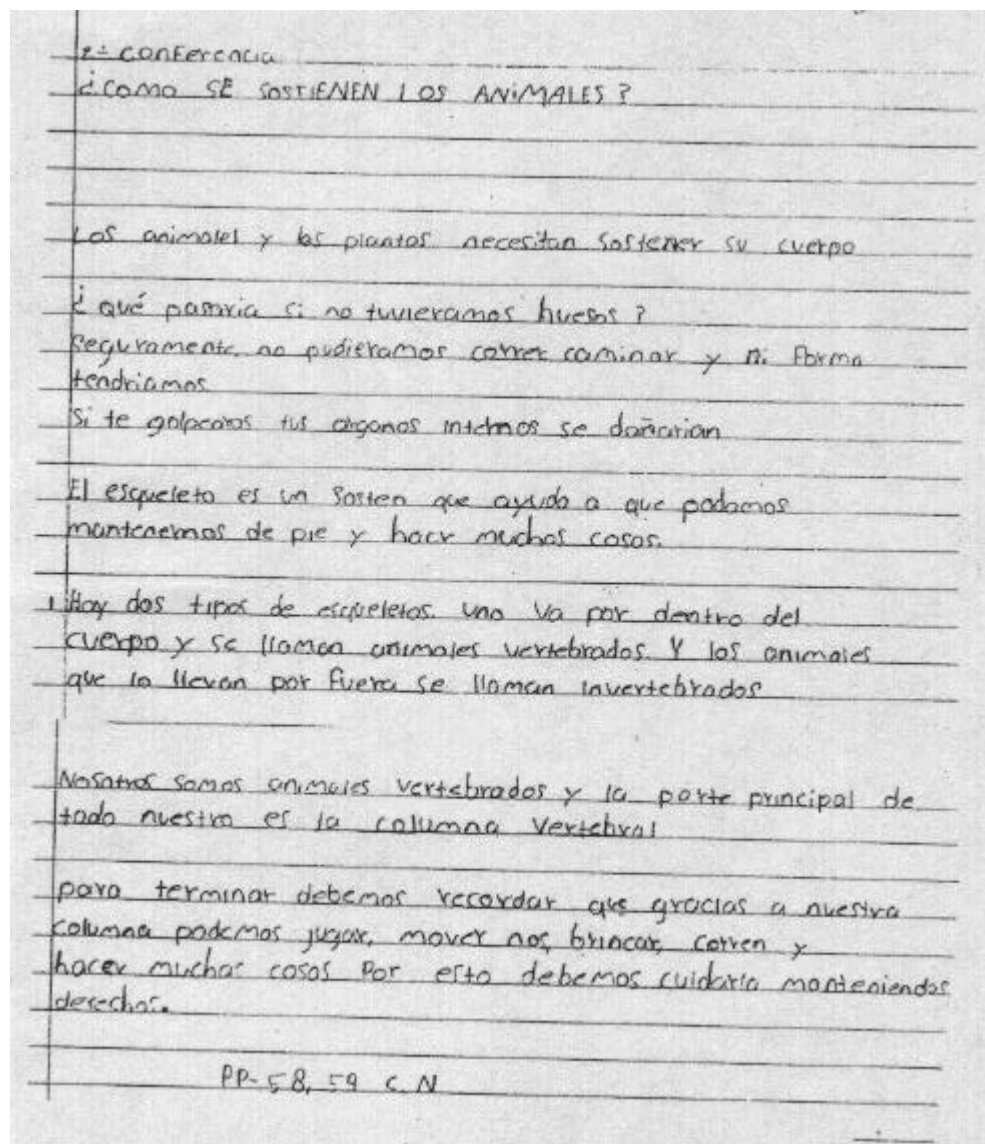 2ª conferencia
¿COMO SE SOSTIENEN LOS ANiMALES?
Los animales y las plantas necesitan sostener su cuerpo
¿qué pasaria si no tuvieramos huesos?
Seguramente no pudieramos correr caminar y ni forma
tendriamos
Si te golpearas tus organos internos se dañarian
El esqueleto es un sosten que ayuda a que podamos
mantenernos de pie y hacer muchas cosas.
1 Hay dos tipos de esqueletos. uno va por dentro del
cuerpo y se llaman animales vertebrados. Y los animales
que lo llevan por fuera se llaman invertebrados
Nosotros somos animales vertebrados y la parte principal de
todo nuestro es la columna vertebral
para terminar debemos recordar que gracias a nuestra
columna podemos jugar, mover nos, brincar, corren y
hacer muchas cosas Por esto debemos cuidarla manteniendos
derechos.
PP- 58, 59 C. N